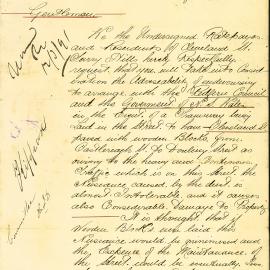 Gentlemen
We the Undersigned Ratepayers
and Residents of Cleveland St
Surry Hills hereby Respectfully
request that you will take into Consid
eration the Advisability of endeavouring
to arrange with the Redfern Council
and the Government of N. S. Wales
in the Event of a Tramway being
laid in the Street. To have Cleveland St
paved with wooden Blocks, from
Castlereagh St to Dowling Street as
owing to the heavy and Continuous
Traffic which is on this Street the
Nuisance caused by the dust is
almost Intolerable and it causes
also Considerable Damage to Property
It is thought that if
Wooden Blocks were laid this
Nuisance would be minimised and
the Expense of the Maintainance of
the Street would be eventually